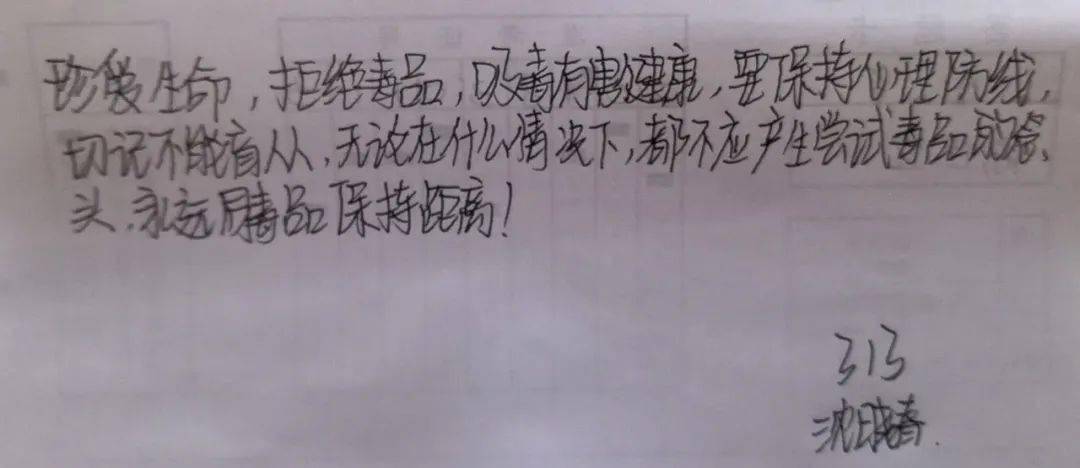 珍爱生命，拒绝毒品，吸毒有害健康，要保持心理防线，
切记不能盲从，无论在什么情况下，都不应产生尝试毒品的念
头，永远与毒品保持距离！
313
沈晓春